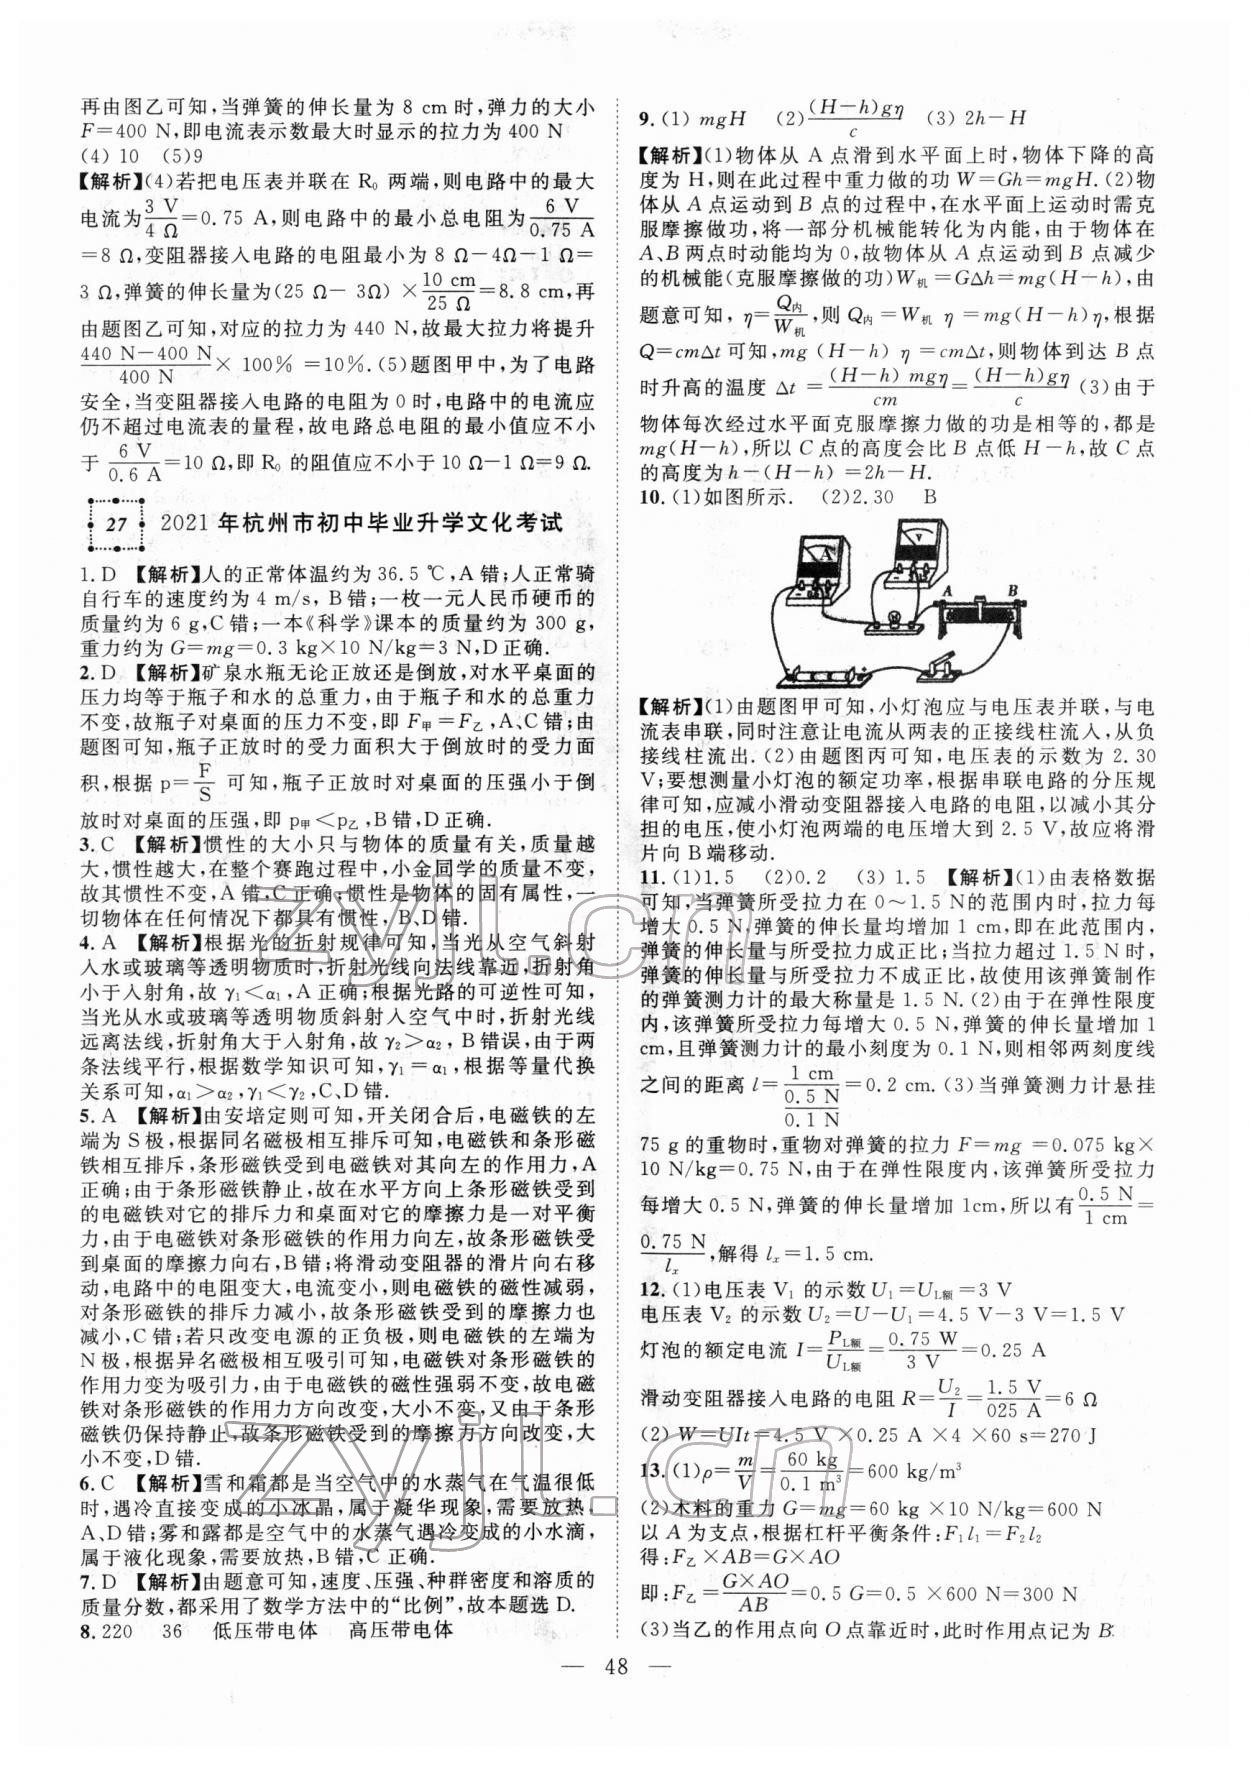 再由图乙可知,当弹簧的伸长量为 8 cm 时,弹力的大小
F=400 N,即电流表示数最大时显示的拉力为 400 N
(4) 10 (5)9
【解析】(4)若把电压表并联在 R₀ 两端,则电路中的最大
电流为 3 V/4 Ω=0.75 A,则电路中的最小总电阻为 6 V/0.75 A
=8 Ω,变阻器接入电路的电阻最小为 8 Ω-4Ω-1 Ω=
3 Ω,弹簧的伸长量为(25 Ω- 3Ω) ×10 cm/25 Ω=8.8 cm,再
由题图乙可知,对应的拉力为 440 N,故最大拉力将提升
440 N-400 N/400 N × 100%=10%.(5)题图甲中,为了电路
安全,当变阻器接入电路的电阻为 0 时,电路中的电流应
仍不超过电流表的量程,故电路总电阻的最小值应不小
于 6 V/0.6 A=10 Ω,即 R₀ 的阻值应不小于 10 Ω-1 Ω=9 Ω.
27 2021 年杭州市初中毕业升学文化考试
1.D 【解析】人的正常体温约为 36.5 ℃,A 错;人正常骑
自行车的速度约为 4 m/s, B错;一枚一元人民币硬币的
质量约为 6 g,C 错;一本《科学》课本的质量约为 300 g,
重力约为 G=mg=0.3 kg×10 N/kg=3 N,D正确.
2.D 【解析】矿泉水瓶无论正放还是倒放,对水平桌面的
压力均等于瓶子和水的总重力,由于瓶子和水的总重力
不变,故瓶子对桌面的压力不变,即 F甲=F乙,A、C 错;由
题图可知,瓶子正放时的受力面积大于倒放时的受力面
积,根据 p=F/S 可知,瓶子正放时对桌面的压强小于倒
放时对桌面的压强,即 p甲<p乙,B错,D正确.
3.C 【解析】惯性的大小只与物体的质量有关,质量越
大,惯性越大,在整个赛跑过程中,小金同学的质量不变,
故其惯性不变,A 错,C 正确;惯性是物体的固有属性,一
切物体在任何情况下都具有惯性,B、D错.
4.A 【解析】根据光的折射规律可知,当光从空气斜射
入水或玻璃等透明物质时,折射光线向法线靠近,折射角
小于入射角,故 γ₁<α₁,A 正确;根据光路的可逆性可知,
当光从水或玻璃等透明物质斜射入空气中时,折射光线
远离法线,折射角大于入射角,故 γ₂>α₂, B 错误,由于两
条法线平行,根据数学知识可知,γ₁=α₁,根据等量代换
关系可知,α₁>α₂,γ₁<γ₂,C、D错.
5.A 【解析】由安培定则可知,开关闭合后,电磁铁的左
端为 S 极,根据同名磁极相互排斥可知,电磁铁和条形磁
铁相互排斥,条形磁铁受到电磁铁对其向左的作用力,A
正确;由于条形磁铁静止,故在水平方向上条形磁铁受到
的电磁铁对它的排斥力和桌面对它的摩擦力是一对平衡
力,由于电磁铁对条形磁铁的作用力向左,故条形磁铁受
到桌面的摩擦力向右,B 错;将滑动变阻器的滑片向右移
动,电路中的电阻变大,电流变小,则电磁铁的磁性减弱,
对条形磁铁的排斥力减小,故条形磁铁受到的摩擦力也
减小,C错;若只改变电源的正负极,则电磁铁的左端为
N极,根据异名磁极相互吸引可知,电磁铁对条形磁铁的
作用力变为吸引力,由于电磁铁的磁性强弱不变,故电磁
铁对条形磁铁的作用力方向改变,大小不变,又由于条形
磁铁仍保持静止,故条形磁铁受到的摩擦力方向改变,大
小不变,D错.
6.C 【解析】雪和霜都是当空气中的水蒸气在气温很低
时,遇冷直接变成的小冰晶,属于凝华现象,需要放热,
A、D错;雾和露都是空气中的水蒸气遇冷变成的小水滴,
属于液化现象,需要放热,B 错,C 正确.
7.D 【解析】由题意可知,速度、压强、种群密度和溶质的
质量分数,都采用了数学方法中的“比例”,故本题选 D.
8.220 36 低压带电体 高压带电体
9.(1) mgH (2)(H-h)gη/c (3) 2h-H
【解析】(1)物体从 A 点滑到水平面上时,物体下降的高
度为 H,则在此过程中重力做的功 W=Gh=mgH.(2)物
体从A点运动到 B 点的过程中,在水平面上运动时需克
服摩擦做功,将一部分机械能转化为内能,由于物体在
A、B两点时动能均为 0,故物体从 A 点运动到 B 点减少
的机械能(克服摩擦做的功)W机=GΔh=mg(H-h),由
题意可知, η=Q内/W机,则 Q内=W机 η =mg(H-h)η,根据
Q=cmΔt 可知,mg (H-h) η =cmΔt,则物体到达 B 点
时升高的温度 Δt =(H-h) mgη/cm=(H-h)gη/c (3)由于
物体每次经过水平面克服摩擦力做的功是相等的,都是
mg(H-h),所以 C 点的高度会比 B点低 H-h,故 C 点
的高度为 h-(H-h) =2h-H.
10.(1)如图所示. (2)2.30 B
A
V
A B
【解析】(1)由题图甲可知,小灯泡应与电压表并联,与电
流表串联,同时注意让电流从两表的正接线柱流入,从负
接线柱流出.(2)由题图丙可知,电压表的示数为 2.30
V;要想测量小灯泡的额定功率,根据串联电路的分压规
律可知,应减小滑动变阻器接入电路的电阻,以减小其分
担的电压,使小灯泡两端的电压增大到 2.5 V,故应将滑
片向 B端移动.
11.(1)1.5 (2)0.2 (3) 1.5 【解析】(1)由表格数据
可知,当弹簧所受拉力在 0~1.5 N的范围内时,拉力每
增大 0.5 N,弹簧的伸长量均增加 1 cm,即在此范围内,
弹簧的伸长量与所受拉力成正比;当拉力超过 1.5 N时,
弹簧的伸长量与所受拉力不成正比,故使用该弹簧制作
的弹簧测力计的最大称量是 1.5 N.(2)由于在弹性限度
内,该弹簧所受拉力每增大 0.5 N,弹簧的伸长量增加 1
cm,且弹簧测力计的最小刻度为 0.1 N,则相邻两刻度线
之间的距离 l=1 cm/(0.5 N/0.1 N)=0.2 cm.(3)当弹簧测力计悬挂
75 g 的重物时,重物对弹簧的拉力 F=mg =0.075 kg×
10 N/kg=0.75 N,由于在弹性限度内,该弹簧所受拉力
每增大 0.5 N,弹簧的伸长量增加 1cm,所以有0.5 N/1 cm=
0.75 N/lₓ,解得 lₓ=1.5 cm.
12.(1)电压表 V₁ 的示数 U₁=U_L额=3 V
电压表 V₂ 的示数 U₂=U-U₁=4.5 V-3 V=1.5 V
灯泡的额定电流 I=P_L额/U_L额=0.75 W/3 V=0.25 A
滑动变阻器接入电路的电阻 R=U₂/I=1.5 V/025 A=6 Ω
(2) W=UIt=4.5 V ×0.25 A ×4 ×60 s=270 J
13.(1)ρ=m/V=60 kg/0.1 m³=600 kg/m³
(2)木料的重力 G=mg=60 kg ×10 N/kg=600 N
以 A 为支点,根据杠杆平衡条件:F₁l₁=F₂l₂
得:F乙×AB=G×AO
即:F乙=G×AO/AB=0.5 G=0.5 ×600 N=300 N
(3)当乙的作用点向 O 点靠近时,此时作用点记为 B′.
— 48 —
zyjl.cn
zyjl.cn